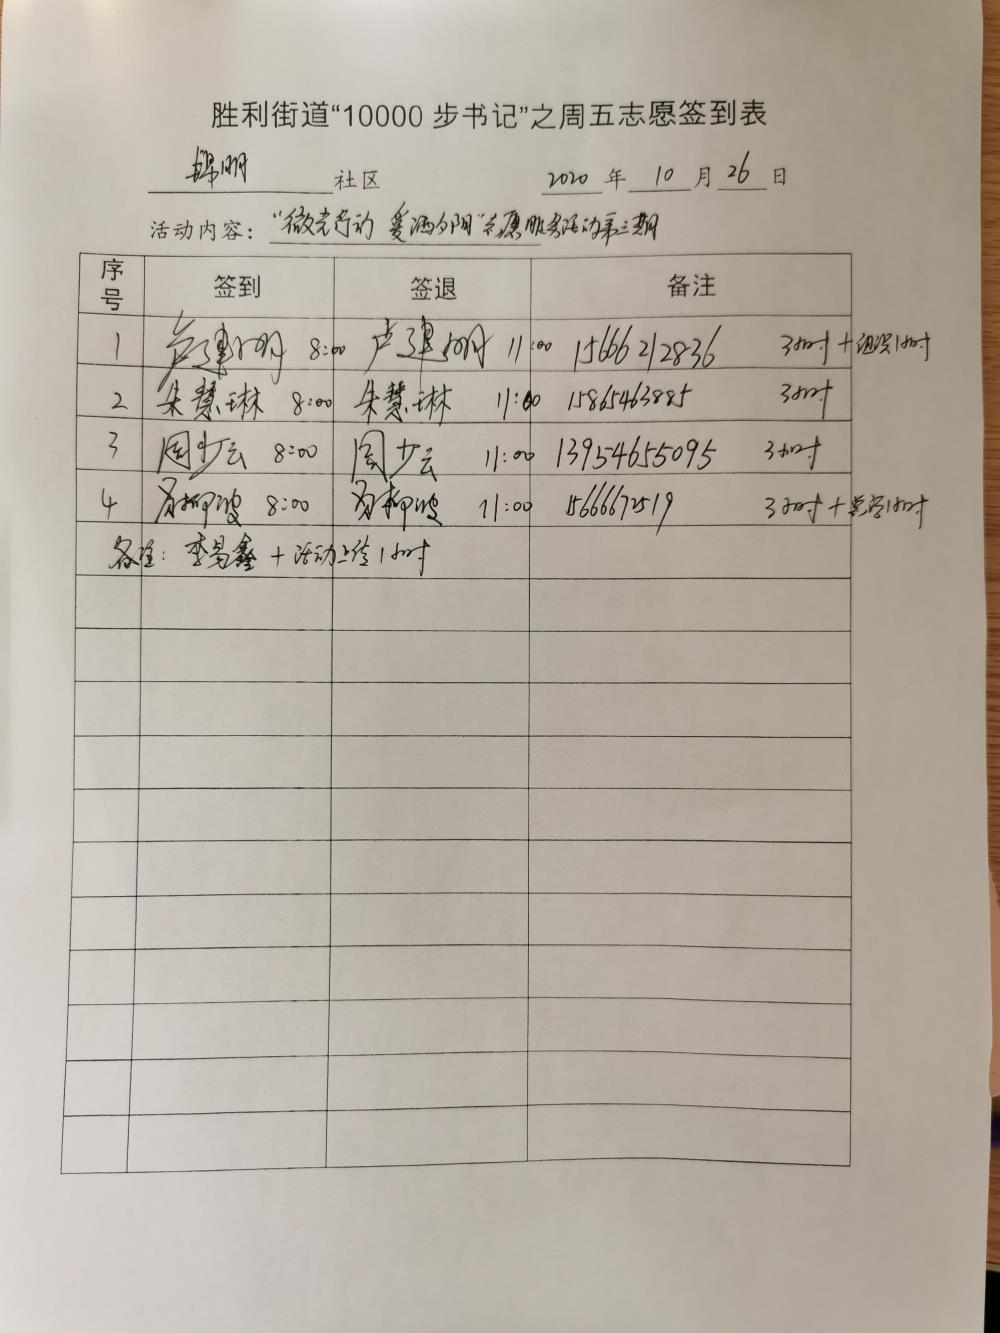 胜利街道“10000 步书记”之周五志愿签到表
锦明 社区 2020 年 10 月 26 日
活动内容： “微光行动 爱洒夕阳”志愿服务活动第三期
序号 签到 签退 备注
1 卢建明 8:00 卢建明 11:00 15666212836 3小时+组织1小时
2 朱慧琳 8:00 朱慧琳 11:00 15865463885 3小时
3 周少云 8:00 周少云 11:00 13954655095 3小时
4 柳波 8:00 柳波 11:00 15666672519 3小时+ 1小时
备注：李易鑫+活动上传1小时